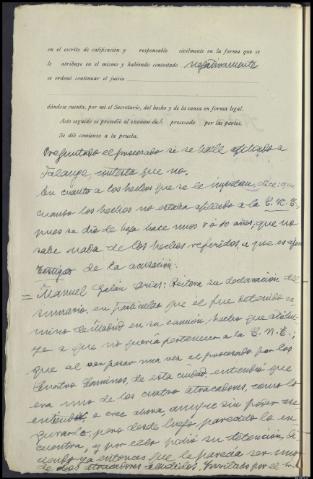 en el escrito de calificación y responsable civilmente en la forma que se
le atribuye en el mismo y habiendo contestado negativamente
se ordenó continuar el juicio
dándose cuenta, por mí el Secretario, del hecho y de la causa en forma legal.
Acto seguido se procedió al examen del procesado por las partes.
Se dió comienzo a la prueba.
Preguntado el procesado si se halla afiliado a
Falange, contesta que no.
En cuanto a los hechos que se le imputan, dice: que
cuando los hechos no estaba afiliado a la C.N.T.
pues se dió de baja hace unos 8 o 10 años, que no
sabe nada de los hechos referidos a que es
de la acusación.
= Manuel Galán Arias: Reitera su declaración del
sumario, en particular que él fue detenido
en su camión, hecho que
a que no quería pertenecer a la C.N.T.;
que al ver pasar una vez al procesado por los
Cuatro Caminos, de esta ciudad, entendió que
era uno de los cuatro atracadores, como lo
entendió o cree ahora, aunque sin poder
pero desde luego parecido lo en-
cuentra, y por ello pidió su detención,
ya entonces que le parecía ser uno
de los atracadores aludidos. Invitado por el